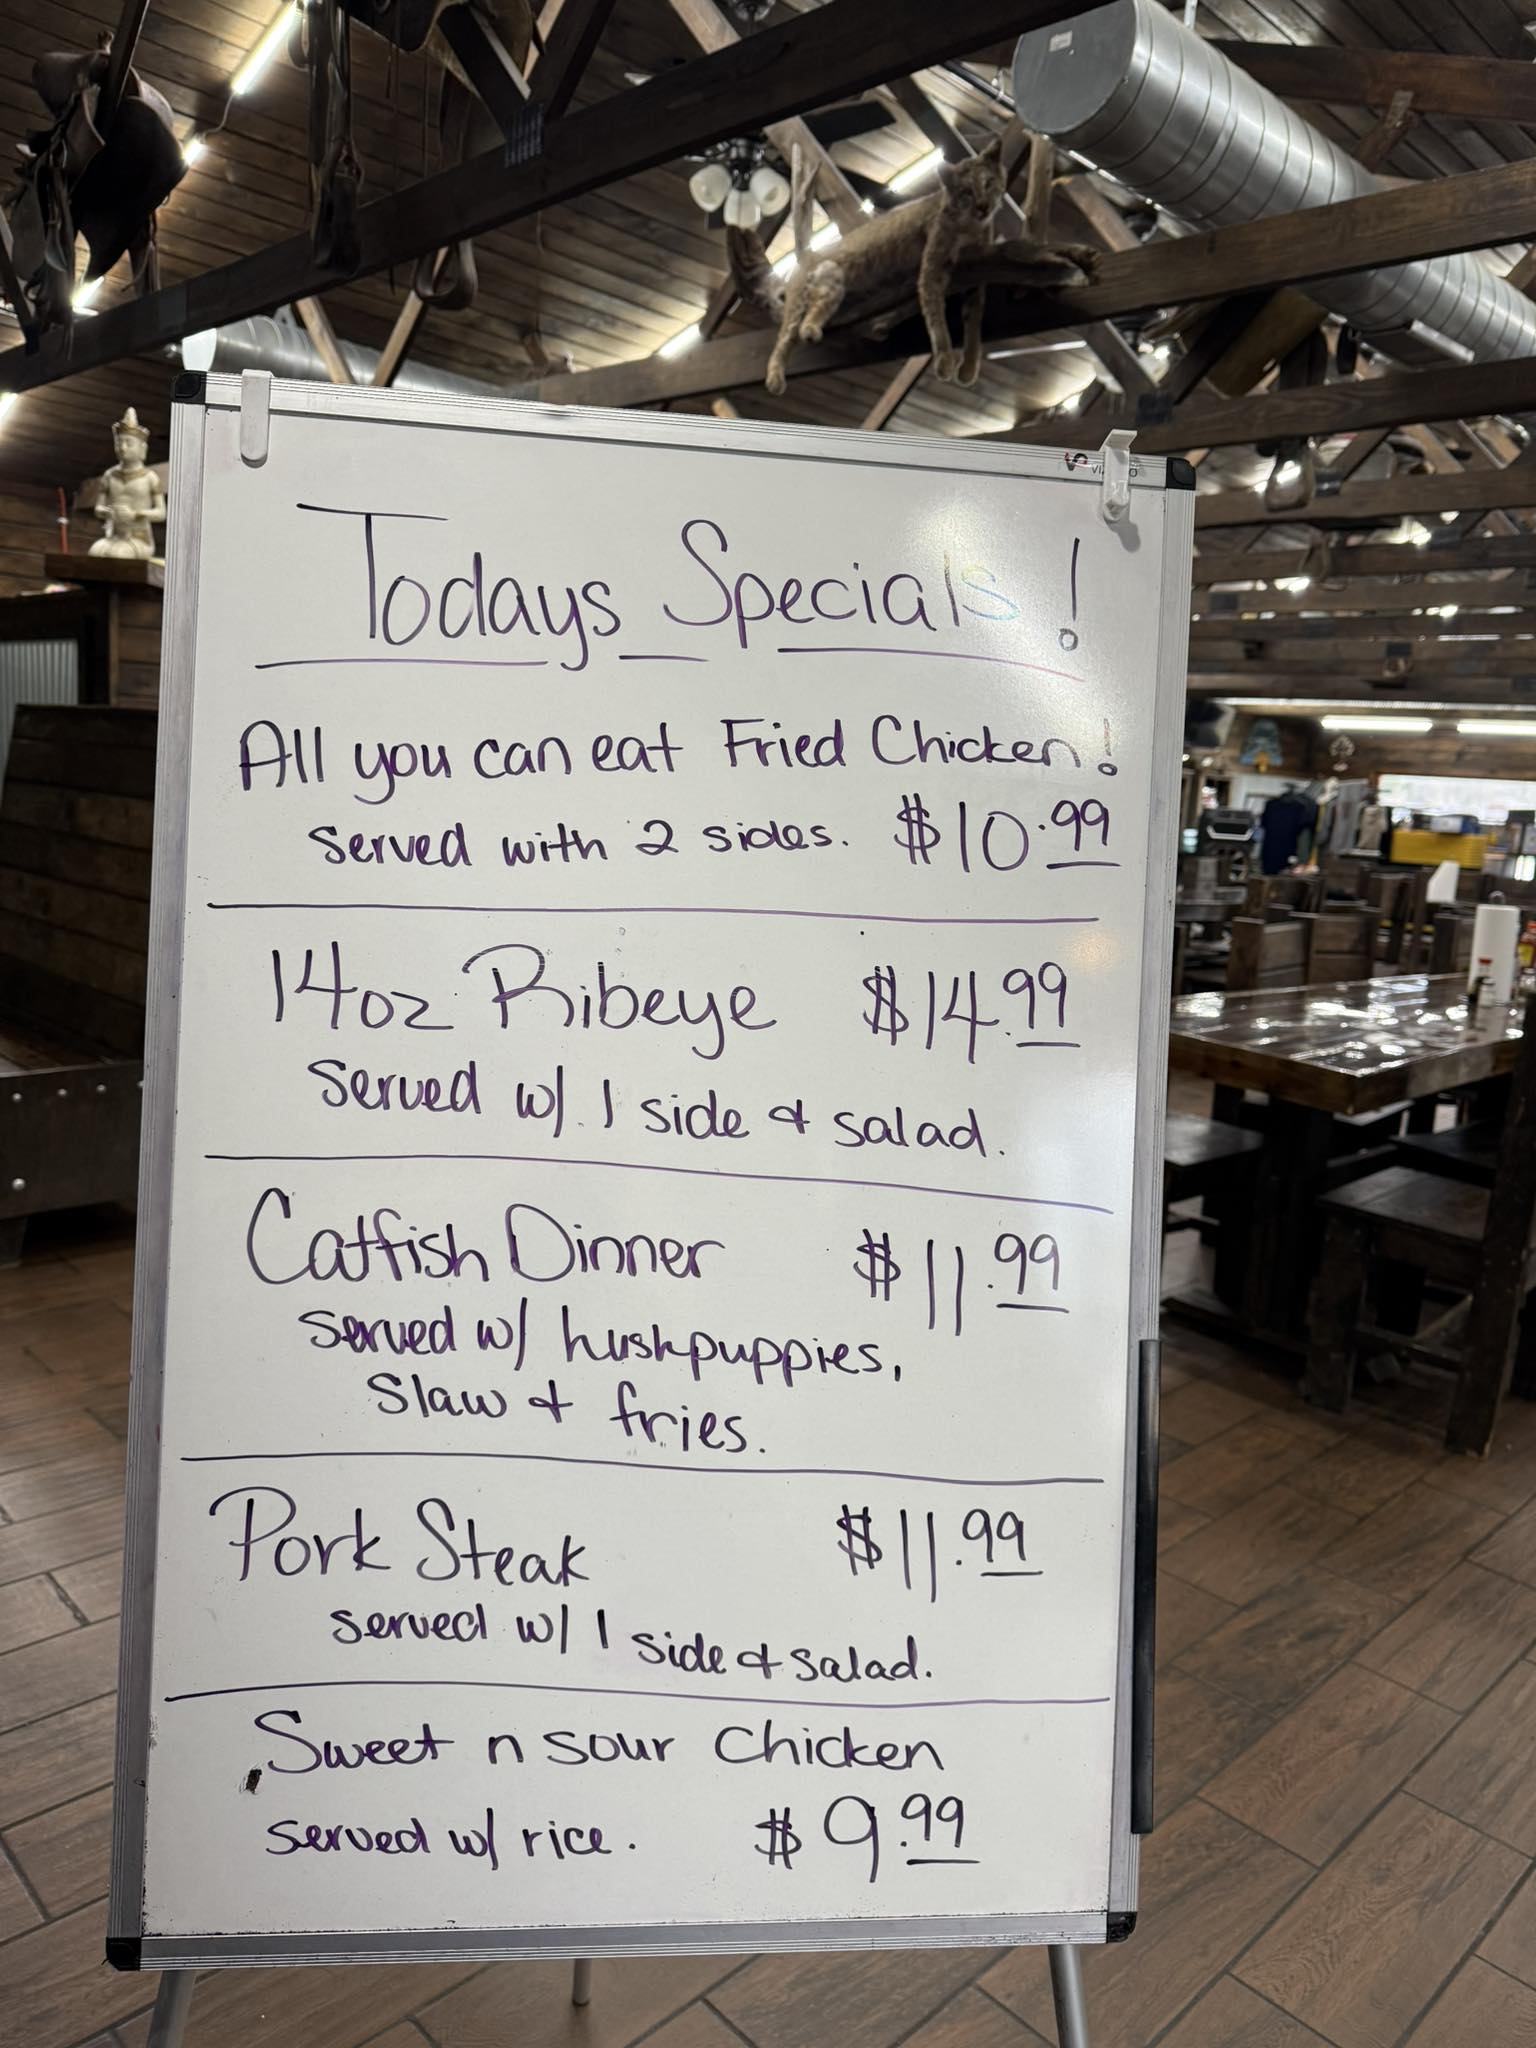 Todays Specials!
All you can eat Fried Chicken!
served with 2 sides. $10.99
14oz Ribeye $14.99
served w/ 1 side & salad.
Catfish Dinner $11.99
served w/ hushpuppies,
slaw & fries.
Pork Steak $11.99
served w/ 1 side & salad.
Sweet n sour chicken
served w/ rice. $9.99